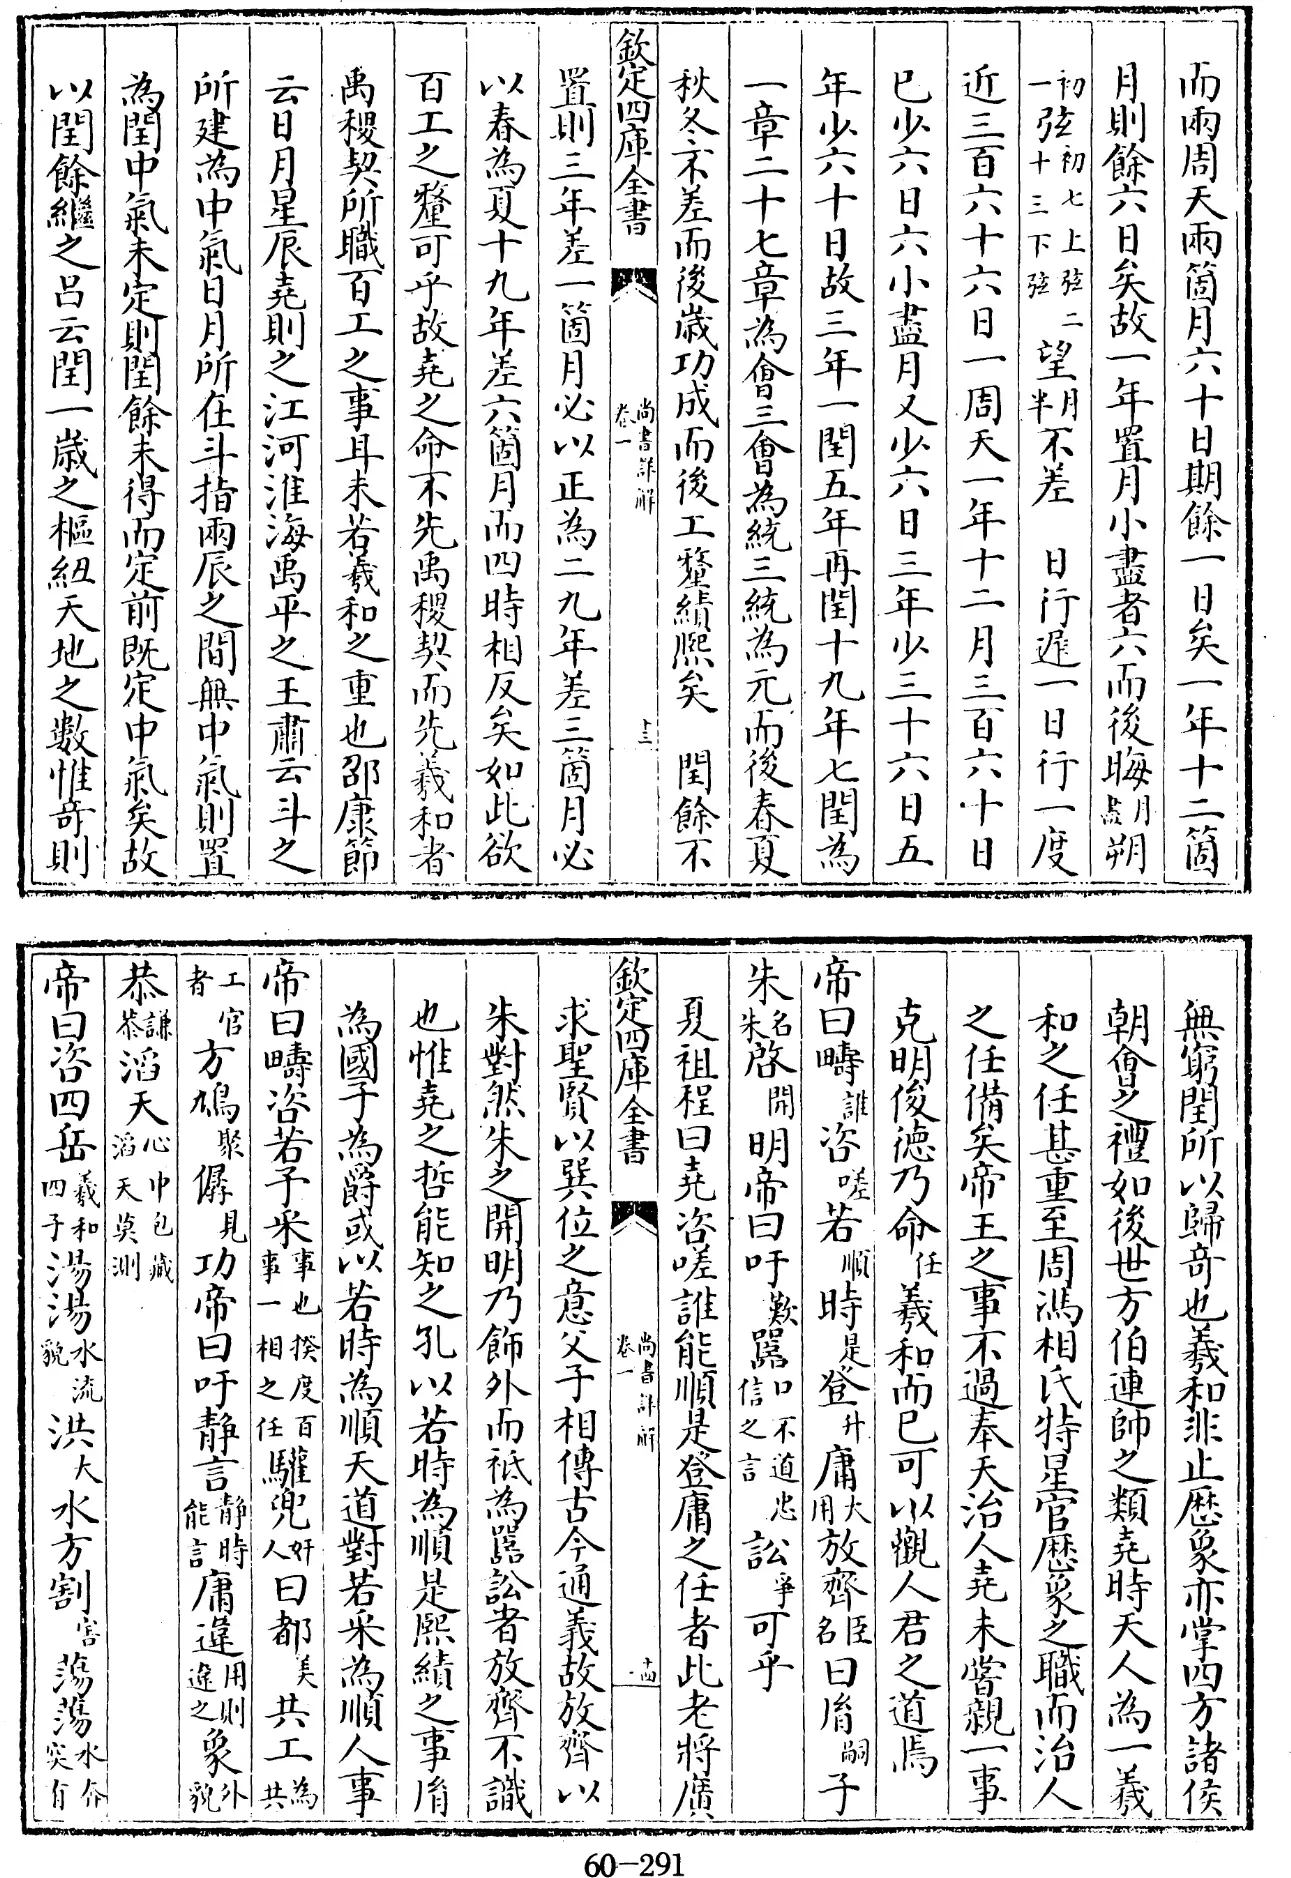 而兩周天兩箇月六十日期餘一日矣一年十二箇
月則餘六日矣故一年置月小盡者六而後晦月盡朔
初一弦初七上弦二十三下弦望月半不差 日行遲一日行一度
近三百六十六日一周天一年十二月三百六十日
已少六日六小盡月又少六日三年少三十六日五
年少六十日故三年一閏五年再閏十九年七閏為
一章二十七章為㑹三㑹為統三統為元而後春夏
秋冬不差而後歳功成而後工釐績熈矣 閏餘不
欽定四庫全書 尚書詳解 卷一 十三
置則三年差一箇月必以正為二九年差三箇月必
以春為夏十九年差六箇月而四時相反矣如此欲
百工之釐可乎故堯之命不先禹稷契而先羲和者
禹稷契所職百工之事耳未若羲和之重也邵康節
云日月星辰堯則之江河淮海禹平之王肅云斗之
所建為中氣日月所在斗指兩辰之間無中氣則置
為閏中氣未定則閏餘未得而定前既定中氣矣故
以閏餘繼之吕云閏一歳之樞紐天地之數惟竒則
無窮閏所以歸竒也羲和非止厯象亦掌四方諸侯
朝㑹之禮如後世方伯連帥之類堯時天人為一羲
和之任甚重至周馮相氏特星官厯象之職而治人
之任備矣帝王之事不過奉天治人堯未嘗親一事
克明俊徳乃命任羲和而已可以觀人君之道焉
帝曰疇誰咨嗟若順時是登升庸大用放齊臣名曰胤嗣子
朱名朱啓開明帝曰吁歎嚚口不道忠信之言訟爭可乎
夏祖程曰堯咨嗟誰能順是登庸之任者此老將廣
欽定四庫全書 尚書詳解 卷一 十四
求聖賢以巽位之意父子相傳古今通義故放齊以
朱對然朱之開明乃飾外而祇為嚚訟者放齊不識
也惟堯之哲能知之孔以若時為順是熈績之事胤
為國子為爵或以若時為順天道對若采為順人事
帝曰疇咨若予采事也揆度百事一相之任驩兜奸人曰都美共工為共
工官者方鳩聚僝見功帝曰吁静言静時能言庸違用則違之象外貌
恭謙恭滔天心中包藏滔天莫測
帝曰咨四岳羲和四子湯湯水流貌洪大水方割害蕩蕩水奔突有
60-291